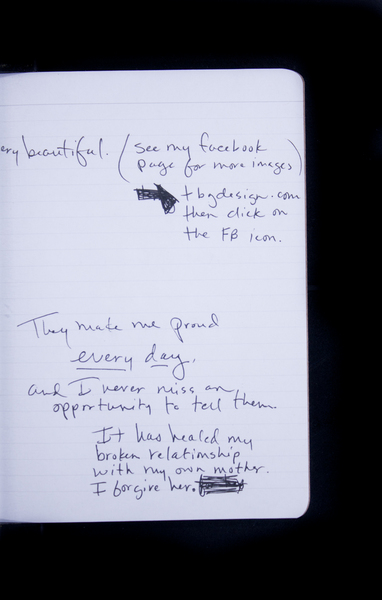 ery beautiful. (see my facebook
page for more images)
tbgdesign.com
then click on
the FB icon.
They make me proud
every day,
and I never miss an
opportunity to tell them.
It has healed my
broken relationship
with my own mother.
I forgive her.